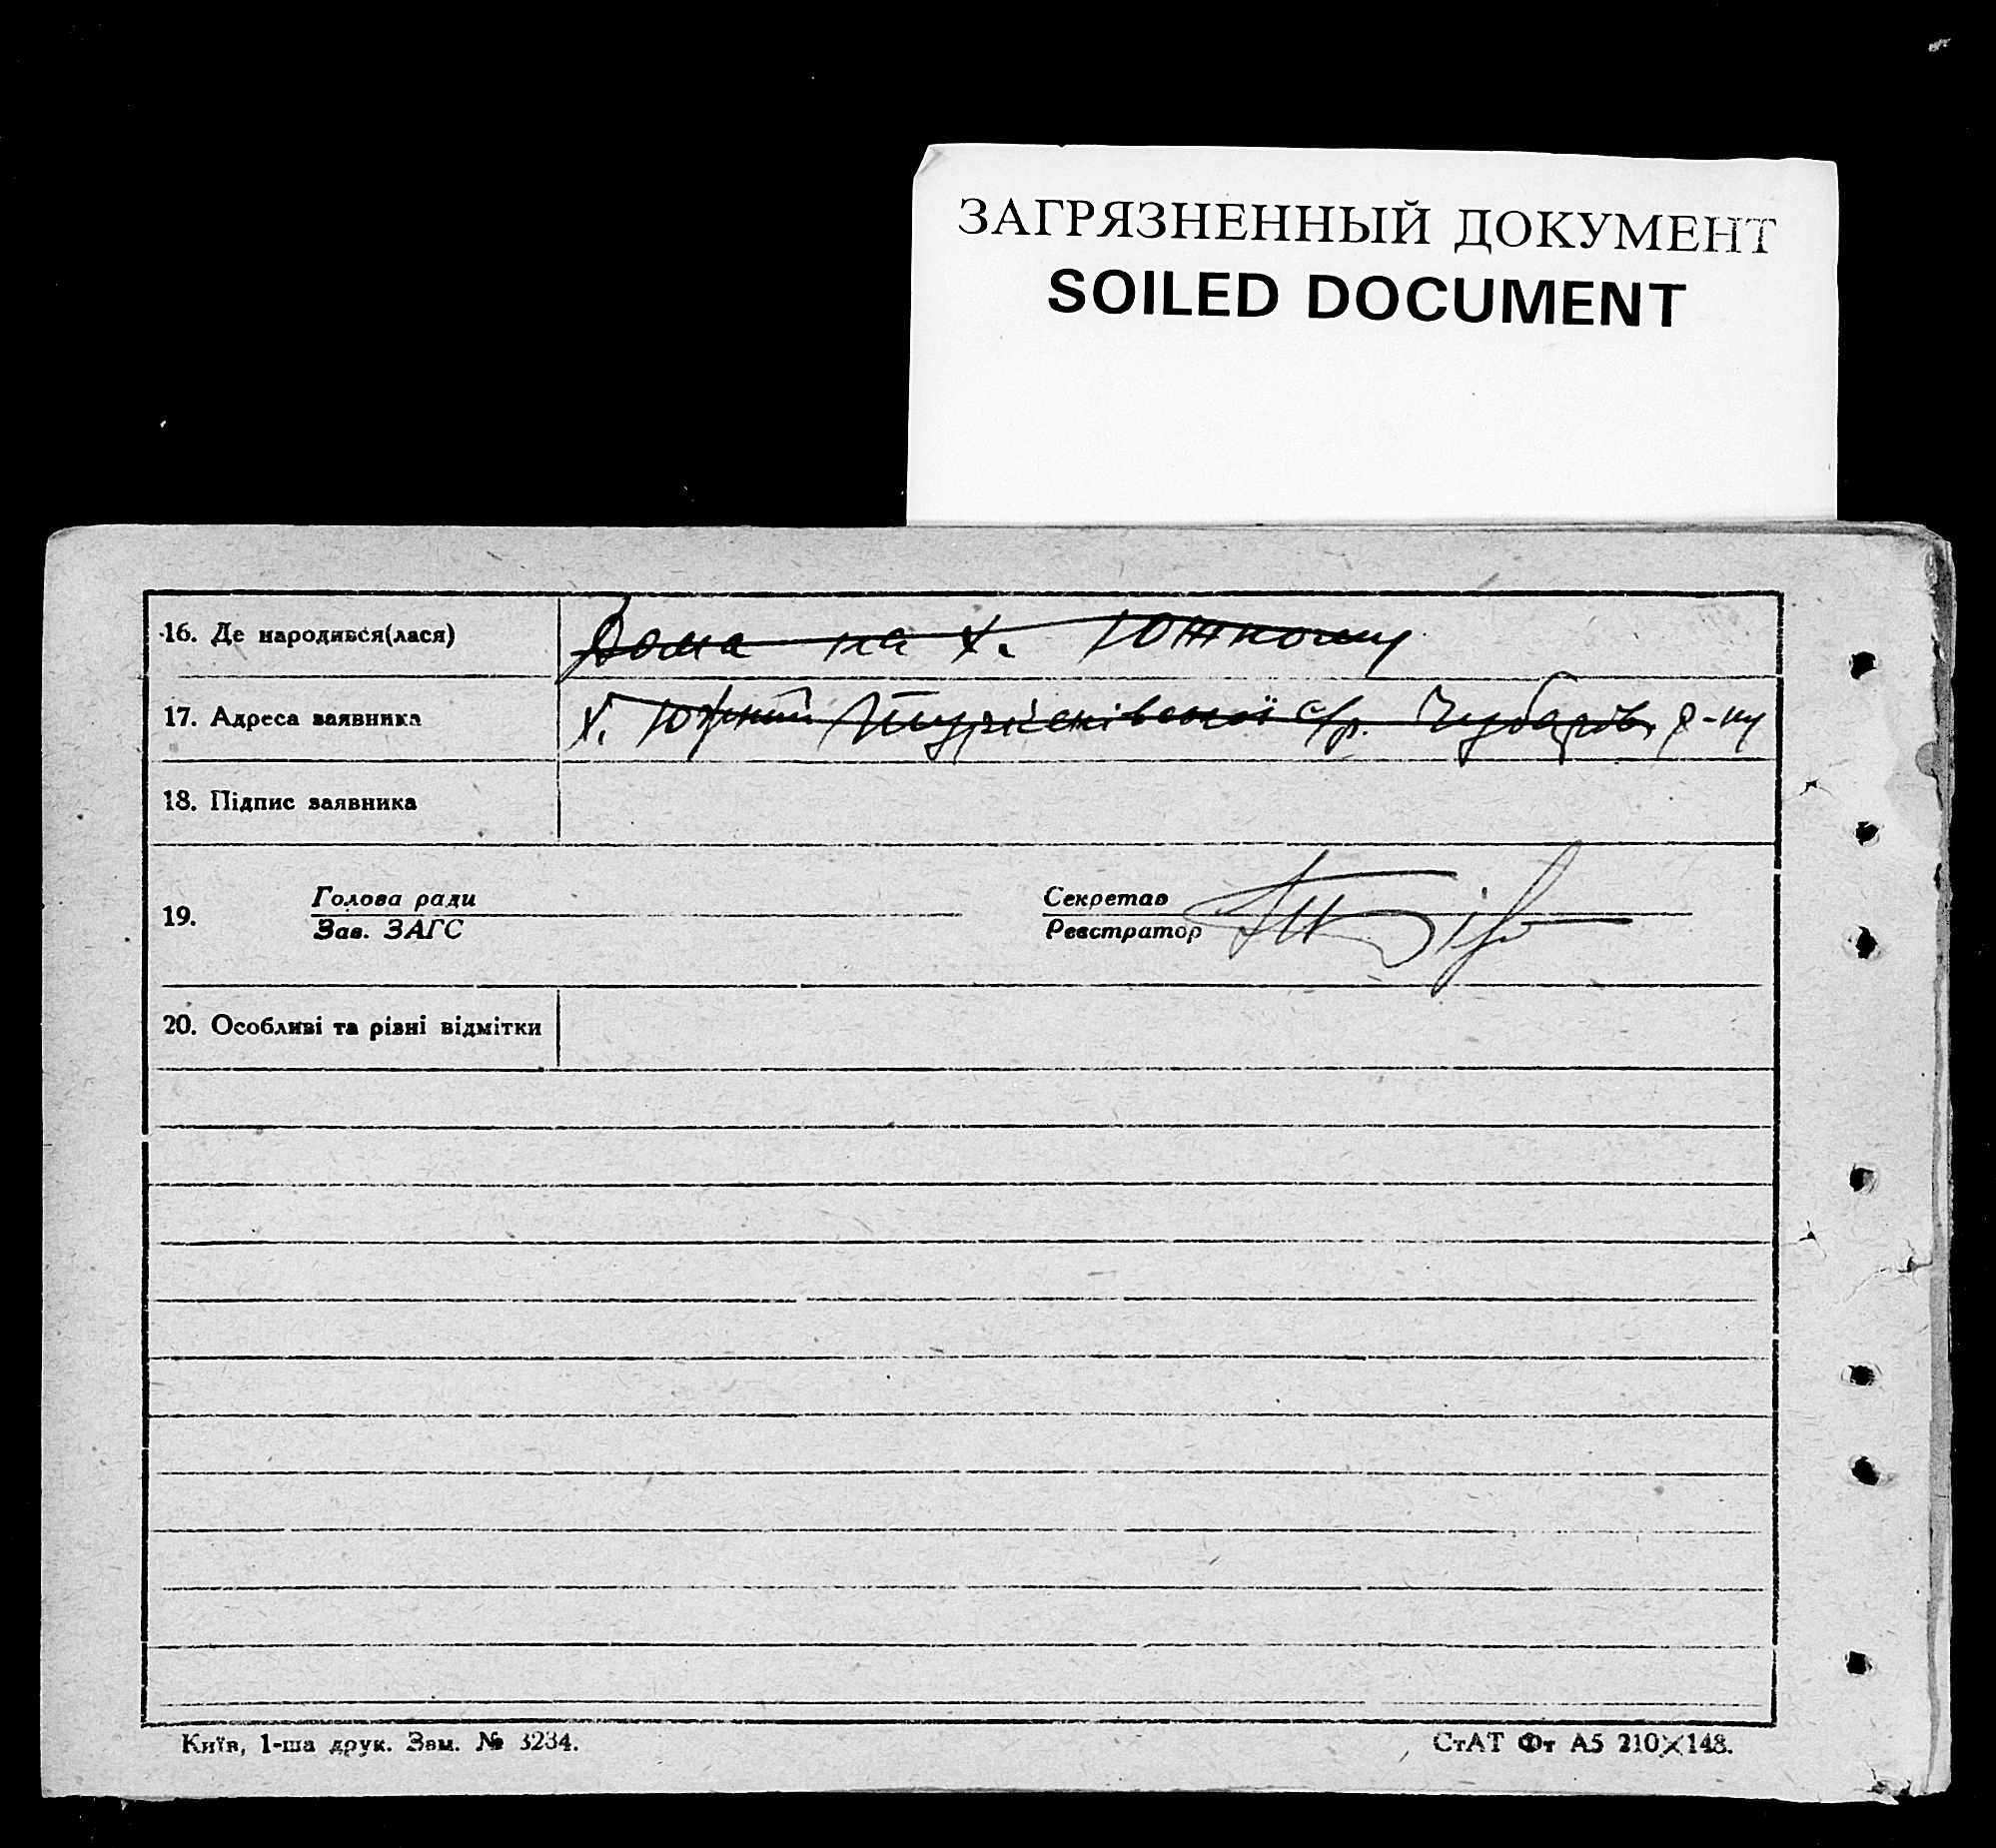 ЗАГРЯЗНЕННЫЙ ДОКУМЕНТ
SOILED DOCUMENT
16. Де народився(лася) Дома на х. Южному
17. Адреса заявника х. Южний с/р. Чубарів. р-ну
18. Підпис заявника
19. Голова ради Секретар
Зав. ЗАГС Реєстратор
20. Особливі та різні відмітки
Київ, 1-ша друк. Зам. № 3234. СтАТ Фт А5 210×148.